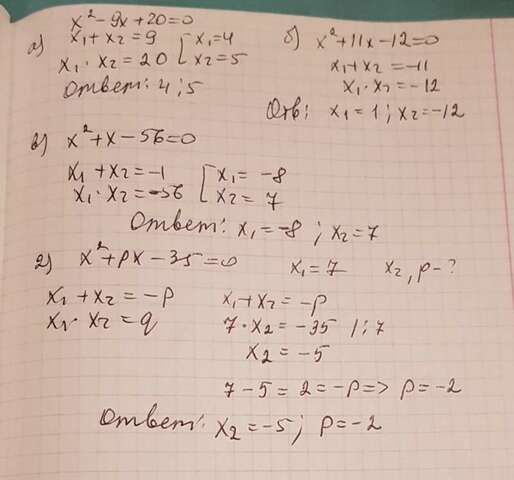 x² - 9x + 20 = 0
а) x₁ + x₂ = 9 [ x₁ = 4
x₁ · x₂ = 20 [ x₂ = 5
Ответ: 4; 5
б) x² + 11x - 12 = 0
x₁ + x₂ = -11
x₁ · x₂ = -12
Отв: x₁ = 1; x₂ = -12
в) x² + x - 56 = 0
x₁ + x₂ = -1 [ x₁ = -8
x₁ · x₂ = -56 [ x₂ = 7
Ответ: x₁ = -8; x₂ = 7
2) x² + px - 35 = 0 x₁ = 7 x₂, p - ?
x₁ + x₂ = -p
x₁ · x₂ = q
x₁ + x₂ = -p
7 · x₂ = -35 | : 7
x₂ = -5
7 - 5 = 2 = -p => p = -2
Ответ: x₂ = -5; p = -2